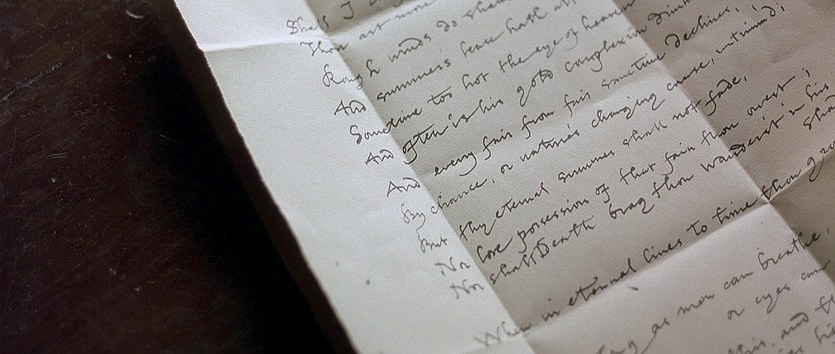 Shall I
Thou art more
Rough winds do sha
And summers lease hath al
Sometime too hot the eye of heaven
And often is his gold complexion dimm
And every fair from fair sometime declines,
By chance, or natures changing course, untrimm'd;
But thy eternal summer shall not fade,
Nor lose possession of that fair thou owest;
Nor shall Death brag thou wander'st in his sha
When in eternal lines to time thou grow
ng as men can breathe, or eyes can
this, and